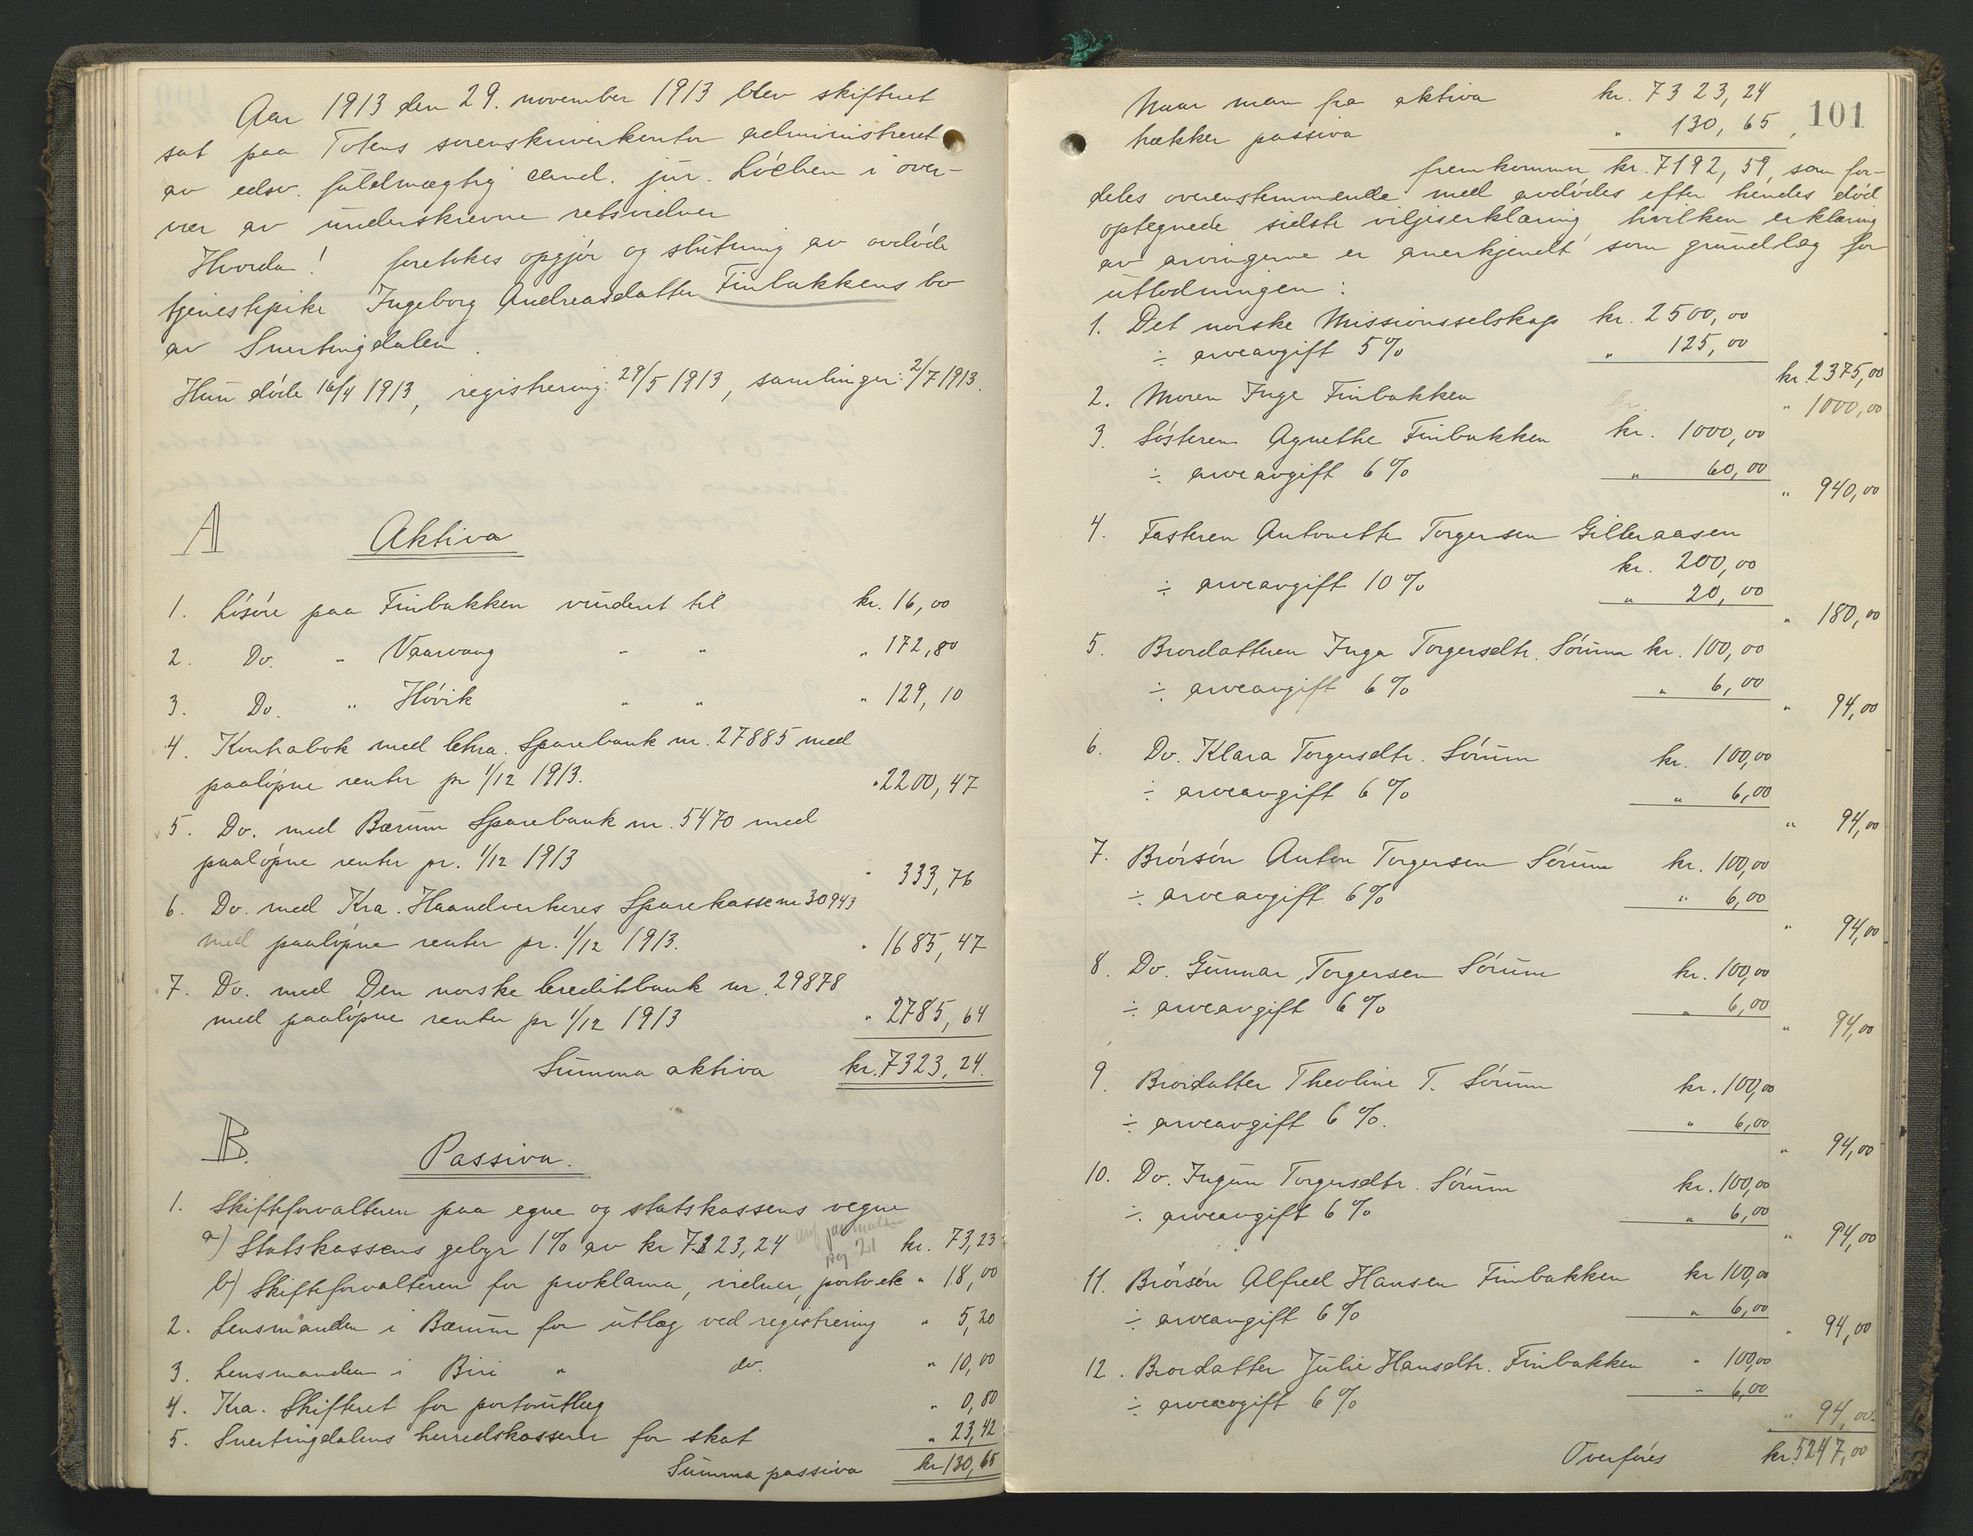 Aar 1913 den 29. november 1913 blev skifteret
sat paa Totens sorenskriverkontor administreret
av edsv. fuldmægtig cand. jur. Lóchen i over-
vær av underskrevne retsvidner
Hvorda! foretokes opgjór og slutning av avdóde
tjenestepike Ingeborg Andreasdatter Finbakkens bo
av Snertingdalen.
Hun dóde 16/4 1913, registrering: 29/5 1913, samlinger: 2/7 1913.
A Aktiva
1. Lósóre paa Finbakken vurderet til kr. 16,00
2. Do. " Vaarvang " " " 172,80
3. Do. " Hóvik " " " 129,10
4. Kontrabok med Chra. Sparebank nr. 27885 med
paalópne renter pr 1/12 1913. " 2200,47
5. Do. med Bærum Sparebank nr. 5470 med
paalópne renter pr. 1/12 1913 " 333,76
6. Do. med Kra. Haandverkeres Sparekasse nr 30943
med paalópne renter pr. 1/12 1913. " 1685,47
7. Do. med Den norske Creditbank nr. 29878
med paalópne renter pr 1/12 1913 " 2785,64
Summa aktiva kr. 7323,24.
B. Passiva.
1. Skifteforvalteren paa egne og statskassens vegne
a) Statskassens gebyr 1% av kr 7323,24 kr. 73,23
b) Skifteforvalteren for proklama, vidner, porto etc " 18,00
2. Lensmanden i Bærum for utlæg ved registrering " 5,20
3. Lensmanden i Biri " do. " 10,00
4. Kra. Skifteret for portoutlæg " 0,80
5. Snertingdalens herredskasserer for skat " 23,42
Summa passiva kr 130,65
101
Naar man fra aktiva kr. 7323,24
trækker passiva " 130,65,
fremkommer kr. 7192,59, som for-
deles overenstemmende med avdódes efter hendes dód
optegnede sidste viljeserklæring, hvilken erklæring
av arvingerne er anerkjendt som grundlag for
utlodningen:
1. Det norske Missionsselskap kr. 2500,00
÷ arveavgift 5% " 125,00
kr. 2375,00
2. Moren Inge Finbakken " 1000,00
3. Sósteren Agnethe Finbakken kr. 1000,00
÷ arveavgift 6% " 60,00
" 940,00
4. Fasteren Antonette Torgersen Gilleraasen
kr. 200,00
÷ arveavgift 10% " 20,00
" 180,00
5. Brordatteren Inga Torgersdtr. Sórum kr. 100,00
÷ arveavgift 6% " 6,00
" 94,00
6. Do. Klara Torgersdtr. Sórum kr. 100,00
÷ arveavgift 6% " 6,00
" 94,00
7. Brórsón Anton Torgersen Sórum kr. 100,00
÷ arveavgift 6% " 6,00
" 94,00
8. Do. Gunnar Torgersen Sórum kr. 100,00
÷ arveavgift 6% " 6,00
" 94,00
9. Brordatter Theoline T. Sórum kr. 100,00
÷ arveavgift 6%. " 6,00
" 94,00
10. Do. Ingun Torgersdtr. Sórum kr. 100,00
÷ arveavgift 6% " 6,00
" 94,00
11. Brórsón Alfred Hansen Finbakken kr 100,00
÷ arveavgift 6% " 6,00
" 94,00
12. Brordatter Julie Hansdtr. Finbakken " 100,00
÷ arveavgift 6% " 6,00
" 94,00
Overfóres kr. 5247,00